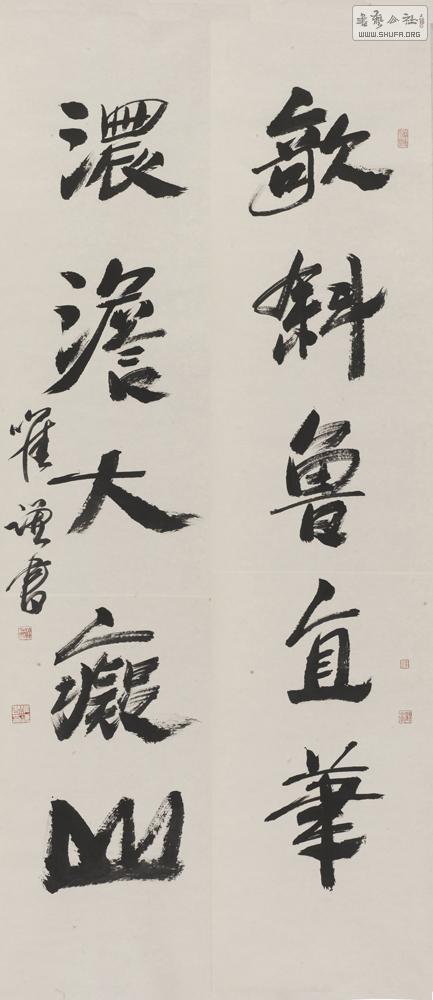 欹斜魯直筆
濃澹大癡山
唯謙書
書藝公社
WWW.SHUFA.ORG